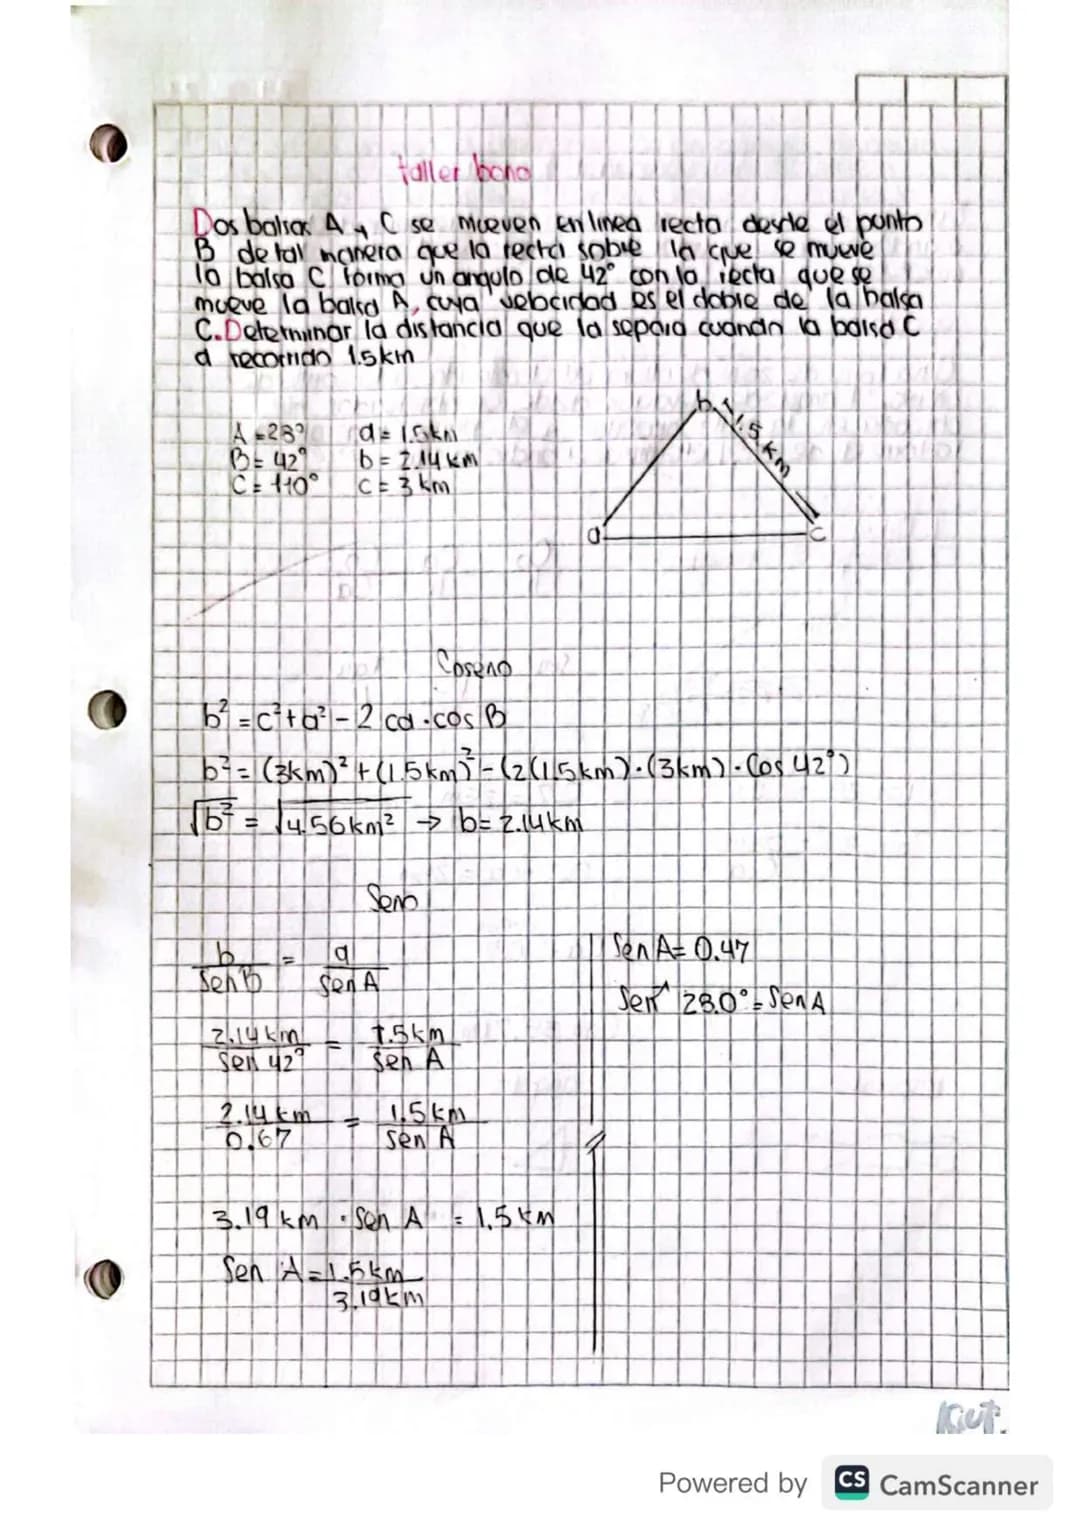 taller bono
Dos balsas A y C se mueven en linea recta desde el punto
B de tal manera que la recta sobre la que se mueve
la balsa C forma un angulo de 42° con la recta que se
mueve la balsa A, cuya velocidad es el doble de la balsa
C. Determinar la distancia que la separa cuando la balsa C
a recorrido 1.5km
A = 28° a = 1.5km
B = 42° b = 2.14 km
C = 110° c = 3 km
b
1.5 km
a
c
Coseno
b² = c² + a² - 2 ca · cos B
b² = (3km)² + (1.5km)² - (2(1.5km) · (3km) · Cos 42°)
√b² = √4.56km² → b = 2.14km
Seno
b/Sen B = a/Sen A
2.14 km/Sen 42° = 1.5km/Sen A
2.14 km/0.67 = 1.5km/Sen A
3.19 km · Sen A = 1.5 km
Sen A = 1.5km/3.19km
Sen A = 0.47
28.0° = Sen A
Powered by CS CamScanner